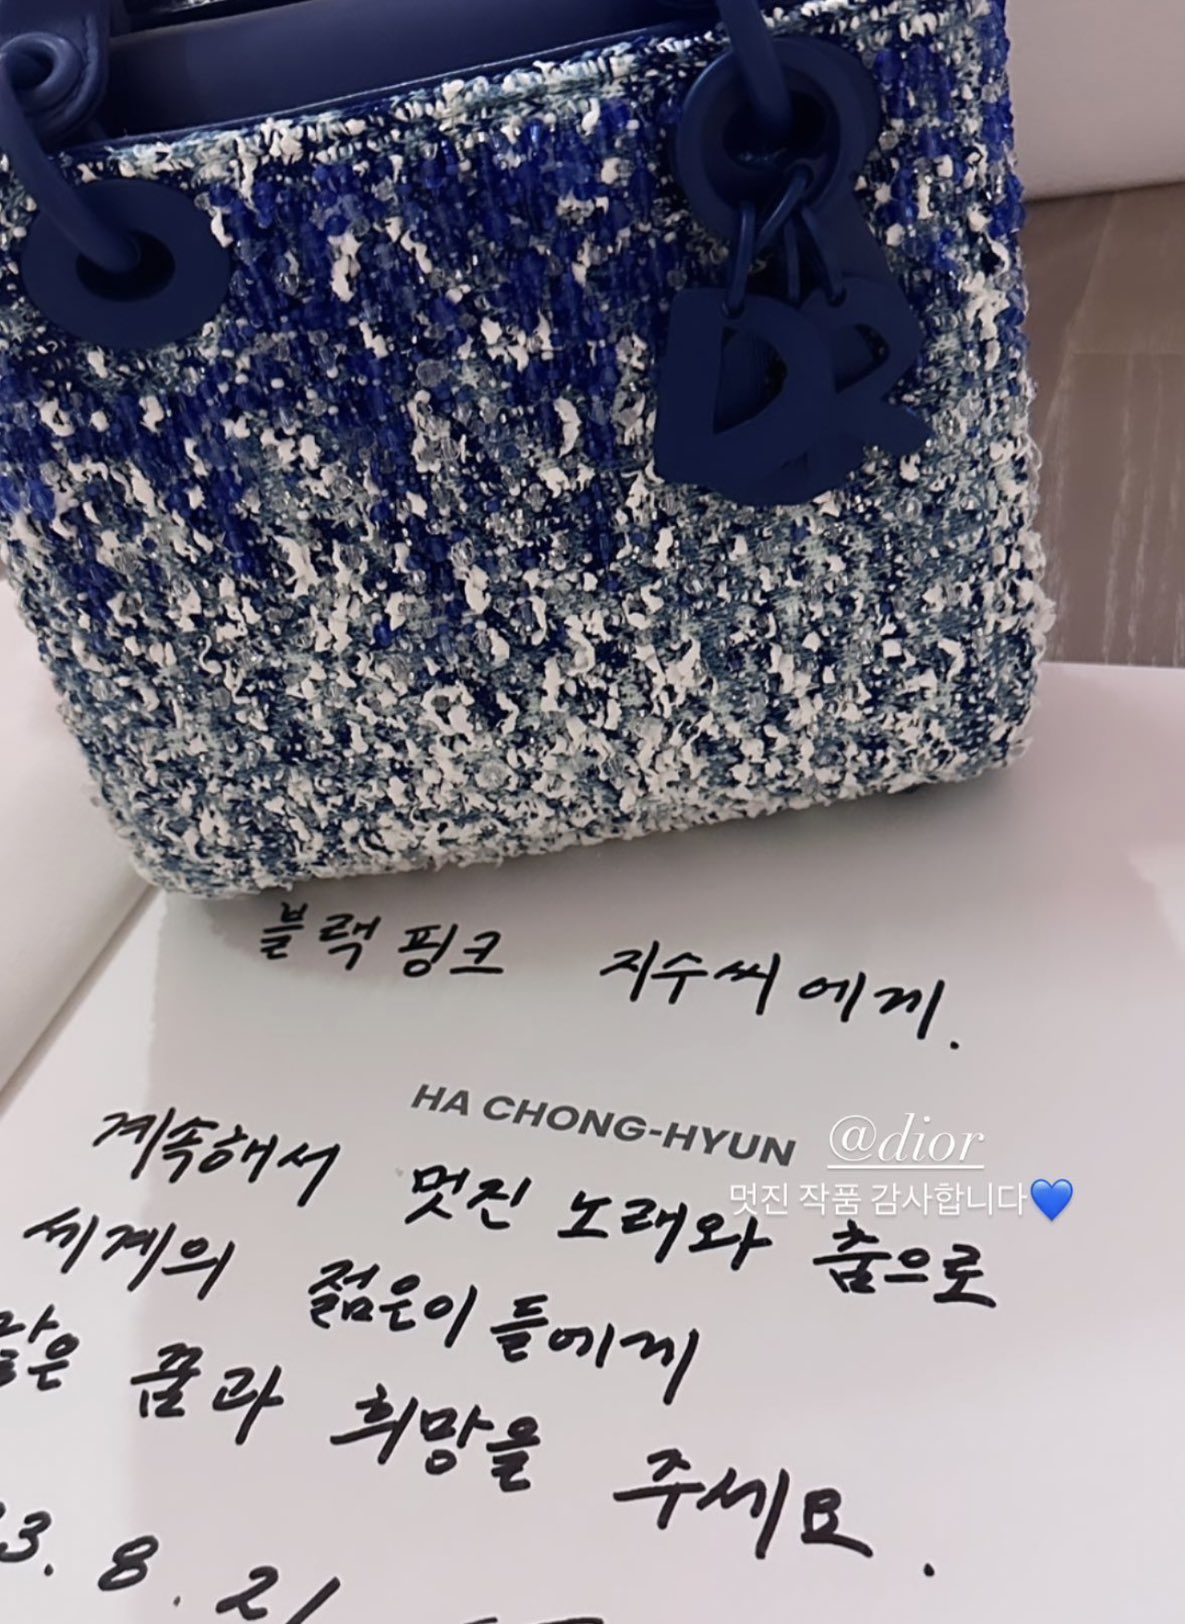 블랙핑크 지수씨에게.
HA CHONG-HYUN
@dior
멋진 작품 감사합니다💙
계속해서 멋진 노래와 춤으로
세계의 젊은이들에게
많은 꿈과 희망을 주세요.
3. 8. 21